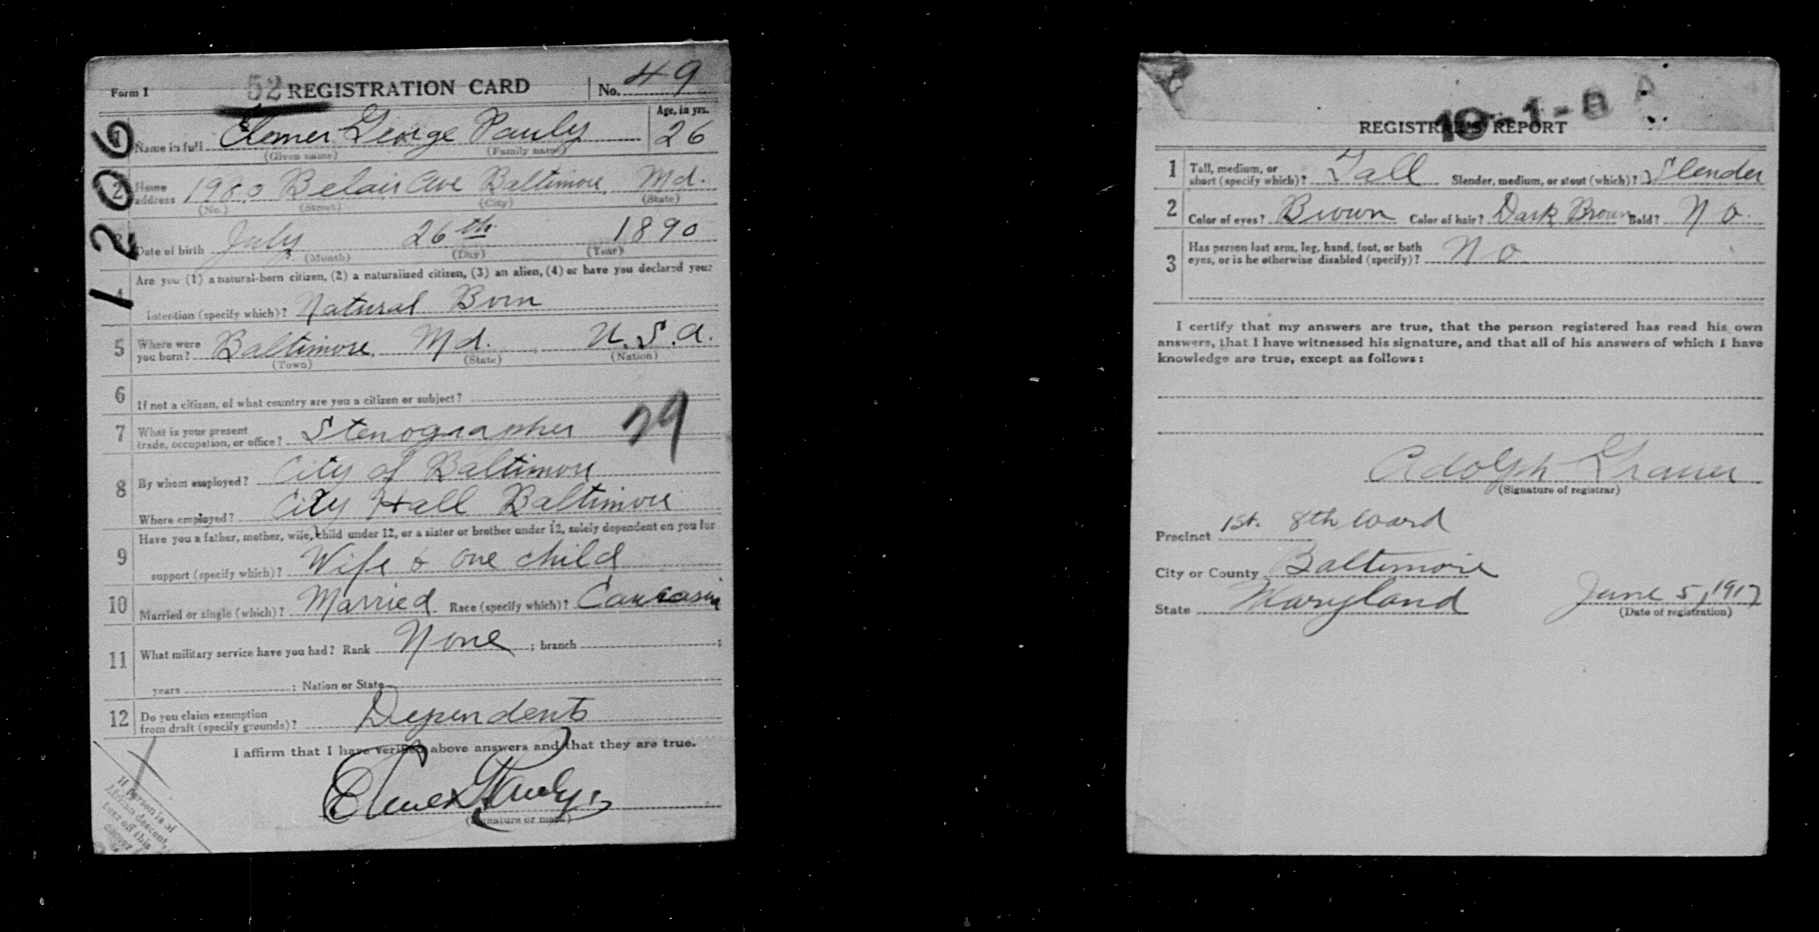 Form 1 52 REGISTRATION CARD No. 49
1206
1 Name in full Elmer George Pauly Age, in yrs. 26
(Given name) (Family name)
2 Home address Belair Ave Baltimore Md.
(No.) (Street) (City) (State)
3 Date of birth July 26th 1890
(Month) (Day) (Year)
4 Are you (1) a natural-born citizen, (2) a naturalized citizen, (3) an alien, (4) or have you declared your
intention (specify which)? Natural Born
5 Where were you born? Baltimore Md. U.S.A.
(Town) (State) (Nation)
6 If not a citizen, of what country are you a citizen or subject?
7 What is your present trade, occupation, or office? Stenographer 29
8 By whom employed? City of Baltimore
Where employed? City Hall Baltimore
9 Have you a father, mother, wife, child under 12, or a sister or brother under 12, solely dependent on you for
support (specify which)? Wife & one child
10 Married or single (which)? Married Race (specify which)? Caucasin
11 What military service have you had? Rank None ; branch ;
years ; Nation or State
12 Do you claim exemption from draft (specify grounds)? Dependents
I affirm that I have verified above answers and that they are true.
Elmer G Pauly
(Signature or mark)
If person is of
African descent,
tear off this
corner
19-1-8 A
REGISTRAR'S REPORT
1 Tall, medium, or short (specify which)? Tall Slender, medium, or stout (which)? Slender
2 Color of eyes? Brown Color of hair? Dark Brown Bald? No
3 Has person lost arm, leg, hand, foot, or both eyes, or is he otherwise disabled (specify)? No
I certify that my answers are true, that the person registered has read his own
answers, that I have witnessed his signature, and that all of his answers of which I have
knowledge are true, except as follows:
Adolph
(Signature of registrar)
Precinct 1st. 8th Ward
City or County Baltimore
State Maryland June 5, 1917
(Date of registration)